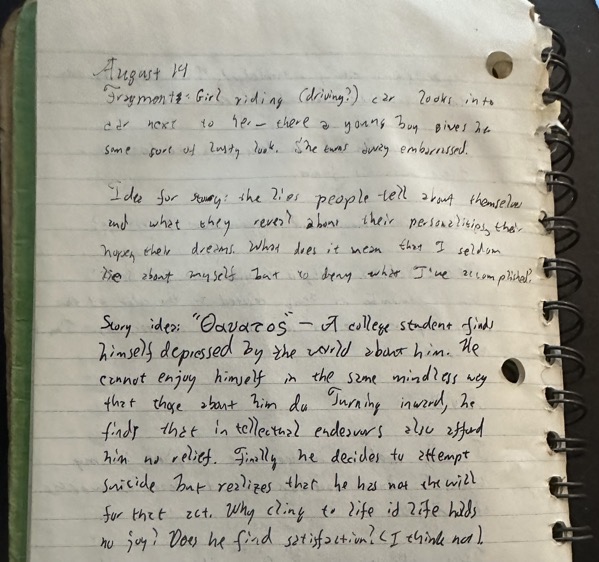 August 14
Fragments: Girl riding (driving?) car looks into
car next to her — there a young boy gives her
some sort of lusty look. She turns away embarrassed.
Idea for story: the lies people tell about themselves
and what they reveal about their personalities, their
hopes, their dreams. What does it mean that I seldom
lie about myself but to deny what I've accomplished?
Story idea: "Θανατος" — A college student finds
himself depressed by the world about him. He
cannot enjoy himself in the same mindless way
that those about him do. Turning inward, he
finds that intellectual endeavors also afford
him no relief. Finally he decides to attempt
suicide but realizes that he has not the will
for that act. Why cling to life id life holds
no joy? Does he find satisfaction? (I think not).